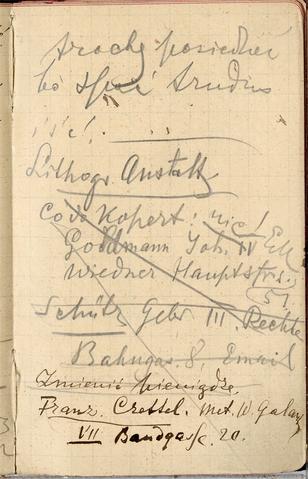 trochę posiedzieć
bo spać trudno
iść!
Lithogr Anstalt
Co do Kopert: nic!
Goldmann Joh. IV
Wiedner Hauptstrs.
51.
Schütz Gebr III. Rechte
Bahngas. 8, Email
Zmienić pieniądze.
Franz. Crettel. Met. W.
VII Bandgasse. 20.